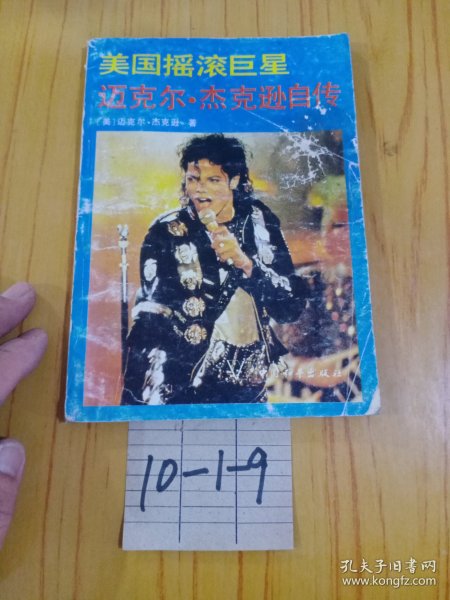 美国摇滚巨星
迈克尔·杰克逊自传
[美]迈克尔·杰克逊 著
出版社
10-1-9
孔夫子旧书网
www.kongfz.com